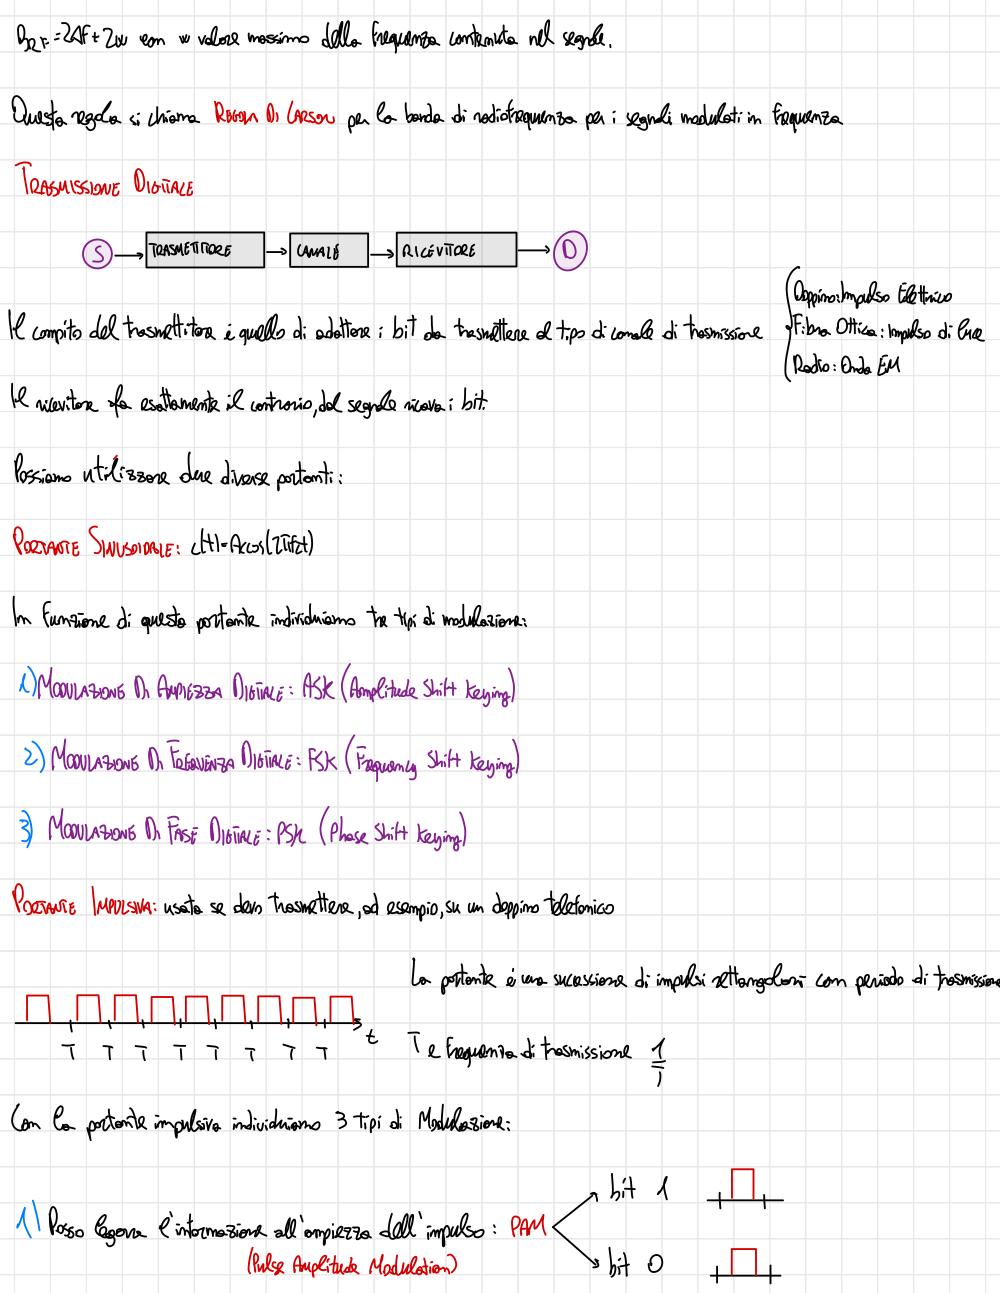 B_RF = 2ΔF + 2w con w valore massimo della frequenza contenuta nel segnale.
Questa regola si chiama REGOLA DI CARSON per la banda di radiofrequenza per i segnali modulati in frequenza
TRASMISSIONE DIGITALE
S TRASMETTITORE CANALE RICEVITORE D
Il compito del trasmettitore è quello di adattare i bit da trasmettere al tipo di canale di trasmissione
Doppino: Impulso Elettrico
Fibra Ottica: Impulso di luce
Radio: Onda EM
Il ricevitore fa esattamente il contrario, dal segnale ricava i bit.
Possiamo utilizzare due diverse portanti:
PORTANTE SINUSOIDALE: c(t)=Acos(2πfct)
In funzione di questa portante individuiamo tre tipi di modulazione:
1) MODULAZIONE DI AMPIEZZA DIGITALE: ASK (Amplitude Shift Keying)
2) MODULAZIONE DI FREQUENZA DIGITALE: FSK (Frequency Shift Keying)
3) MODULAZIONE DI FASE DIGITALE: PSK (Phase Shift Keying)
PORTANTE IMPULSIVA: usata se devo trasmettere, ad esempio, su un doppino telefonico
La portante è una successione di impulsi rettangolari con periodo di trasmissione
T e frequenza di trasmissione 1/T
T T T T T T T T t
Con la portante impulsiva individuiamo 3 tipi di Modulazione:
bit 1
1) Posso legare l'informazione all'ampiezza dell'impulso: PAM
(Pulse Amplitude Modulation)
bit 0